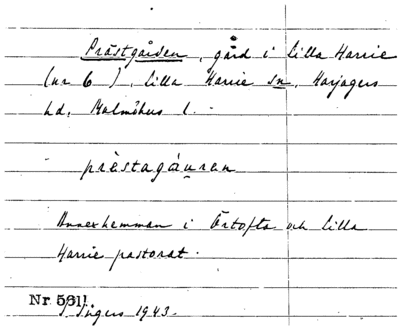 Prästgården, gård i Lilla Harrie
(nr 6), Lilla Harrie sn, Harjagers
hd, Malmöhus l.
prèstagáu̯ren
Annexhemman i Örtofta och Lilla
Harrie pastorat.
Nr 5811
I. Ingers 1943.